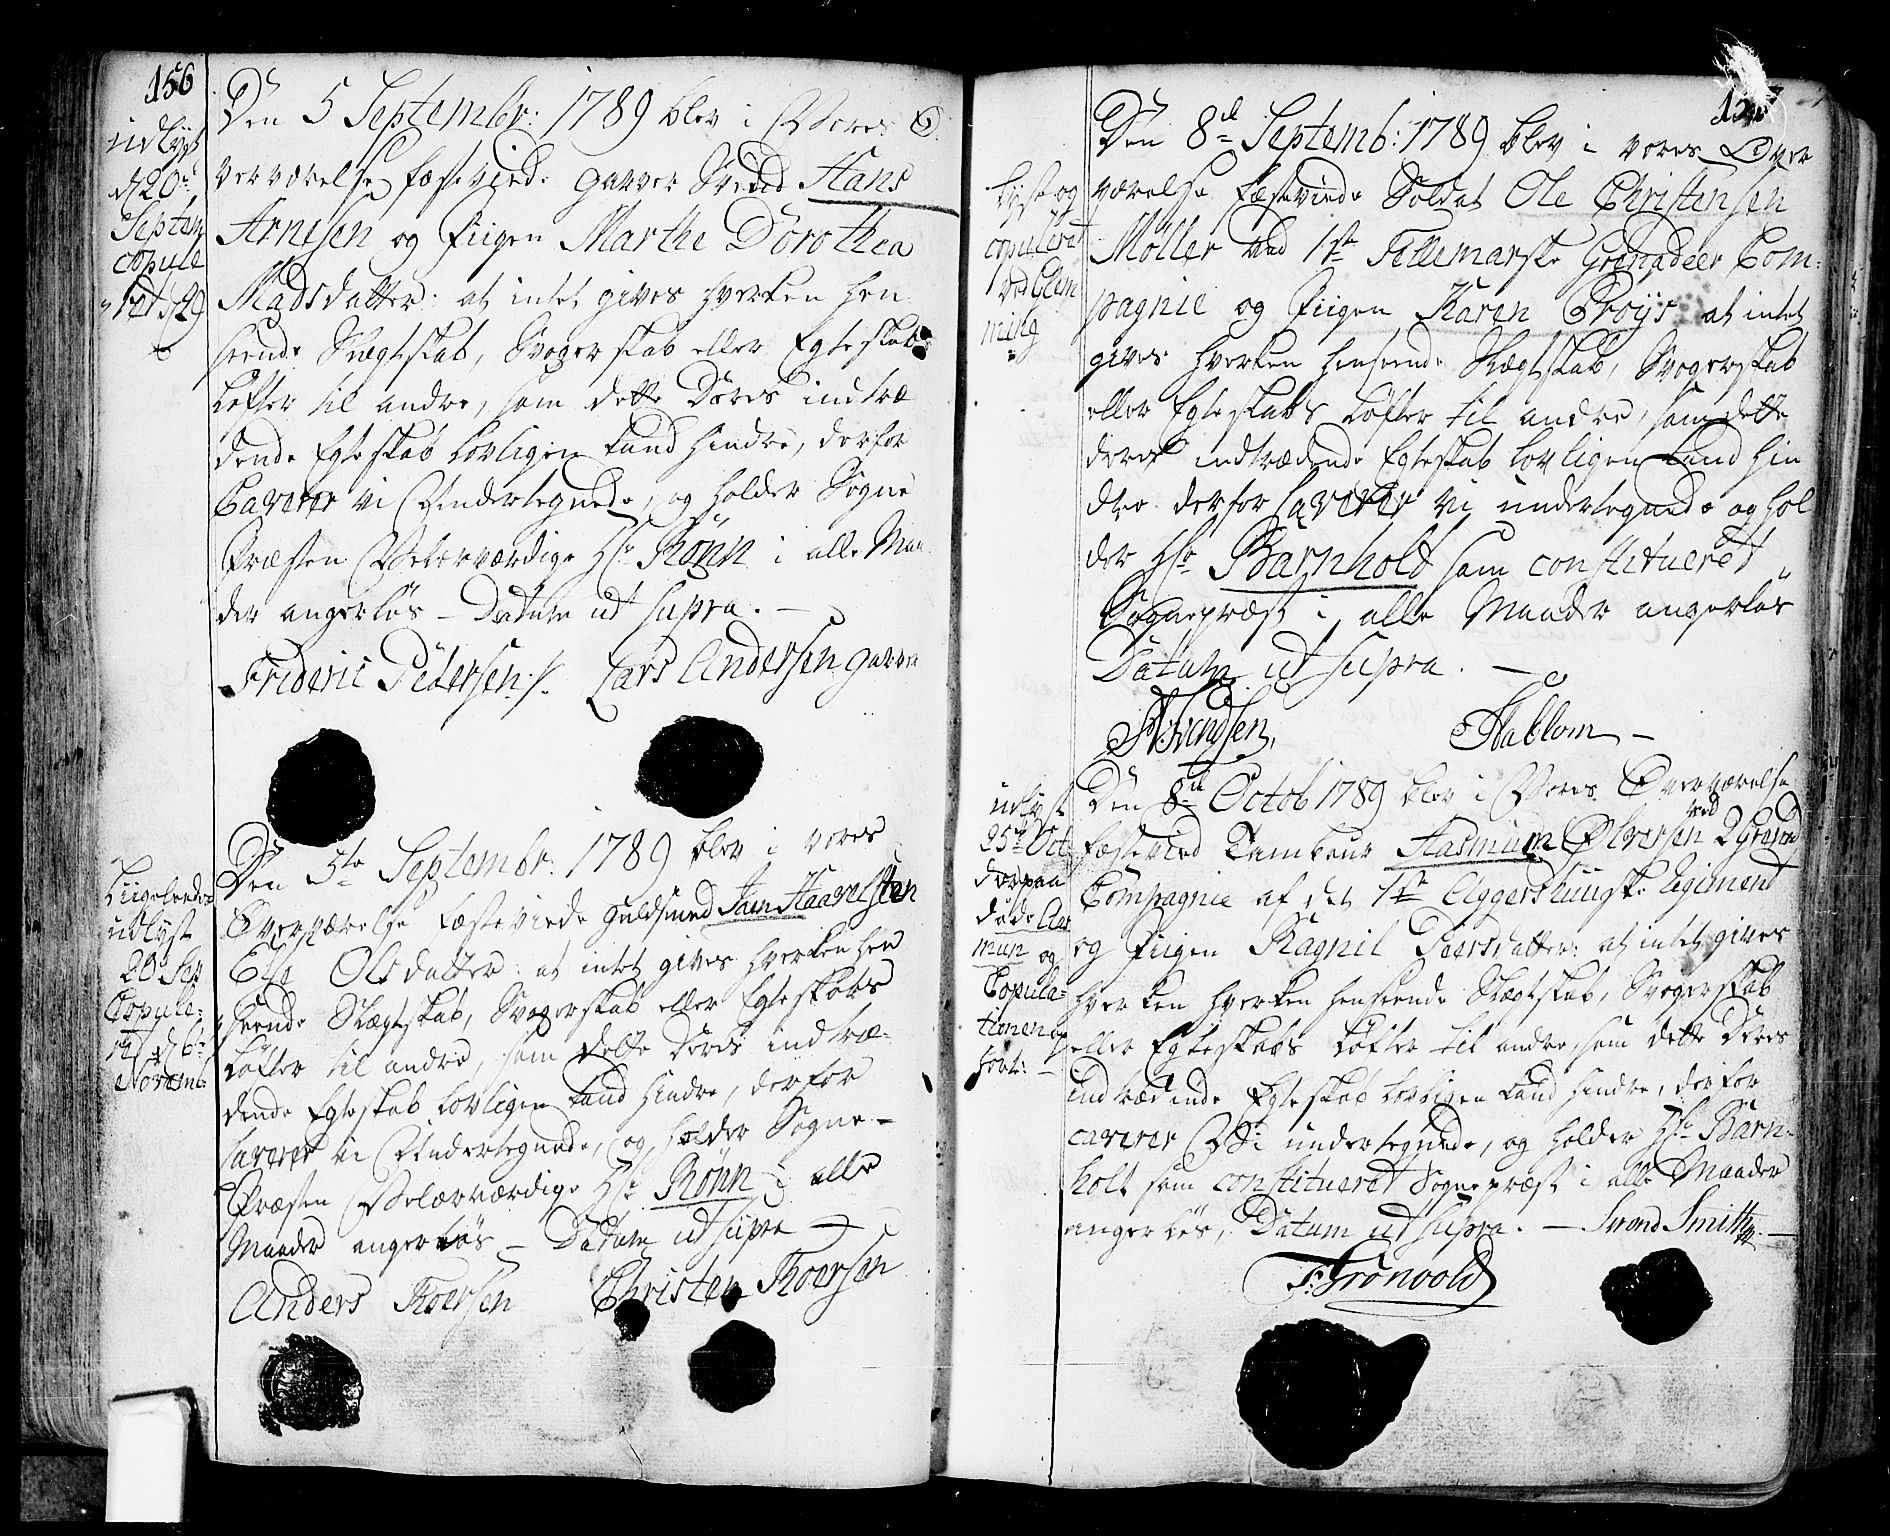 156
udlyst
d 20de
Septem
copule
ret d 29
Den 5 Septembr: 1789 blev i Vores O
verværelse fæsteviede Garver Svend Hans
Arnesen og Piigen Marthe Dorothea
Madsdatter: at intet gives hverken hen
seende Slægtskab, Svogerskab eller Egteskabs
Løfter til andre, som dette Deres indtræ
dende Egteskab lovligen kand hindre, derfor
Caverer vi Undertegnede, og holder Sogne
Præsten Velærværdige Hr. Rønn i alle Maa
der angerløs – Datum ut supra. –
Frideric Pedersen Lars Andersen Garver
Liigeledes
udlyst
20 Sep
Copule-
ret d 6te
Novemb:
Den 5te Septembr: 1789 blev i vores
Overværelse fæsteviede Guldsmed Iæn Haavelsen
Else Olsdatter: at intet gives hverken hen
seende Slægtskab, Svogerskab eller Egteskabs
Løfter til andre, som dette Deres indtræ-
dende Egteskab lovligen kand hindre, derfor
caverer vi Undertegnede, og holder Sogne-
Præsten Velærværdige Hr. Rønn i alle
Maader angerløs – Datum ut supra –
Anders Roersen Christen Roersen
lyst og
copuleret
ved Glem
ming
Den 8de Septemb: 1789 blev i vores Over
værelse fæsteviede Soldat Ole Christensen
Møller ved 1ste Tellemarske Grenadeer Com-
pagnie og Piigen Karen Crøys at intet
gives hverken henseende Slægtskab, Svogerskab
eller Egteskabs Løfter til andre, som dette
deres indtrædende Egteskab lovligen kand hin
dre derfor caverer vi undertegnede og hol
der Hr. Barnhold som constitueret
Sognepræst i alle Maader angerløs
Datum ut supra. –
Stablom –
udlyst
25de Oct
derpaa
døde Aas
mun og
Copula-
tionen op
hört: –
Den 8de Octob 1789 blev i Vores Overværelse
fæsteviet Tambour Aasmun Ølversen ved 2 Grenad
Compagnie af det 1ste Aggershuuske Regiment
og Piigen Ragnil Peersdatter: at intet gives
hverken hverken henseende Slægtskab, Svogerskab
eller Egteskabs Løfter til andre, som dette Deres
indtrædende Egteskab lovligen kand hindre, derfor
caverer Vi undertegnede, og holder Hr. Barn-
holt som constitueret Sognepræst i alle Maader
angerløs, Datum ut supra. – Svend Smitt –
F: Grönvold